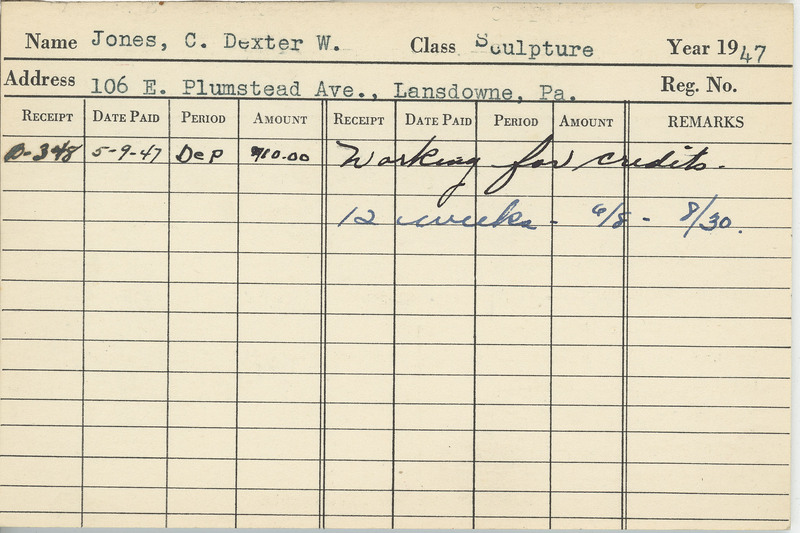 Name Jones, C. Dexter W. Class Sculpture Year 1947
Address 106 E. Plumstead Ave., Lansdowne, Pa. Reg. No.
RECEIPT DATE PAID PERIOD AMOUNT RECEIPT DATE PAID PERIOD AMOUNT REMARKS
D-348 5-9-47 Dep $10.00 Working for credits.
12 weeks - 6/8 - 8/30.